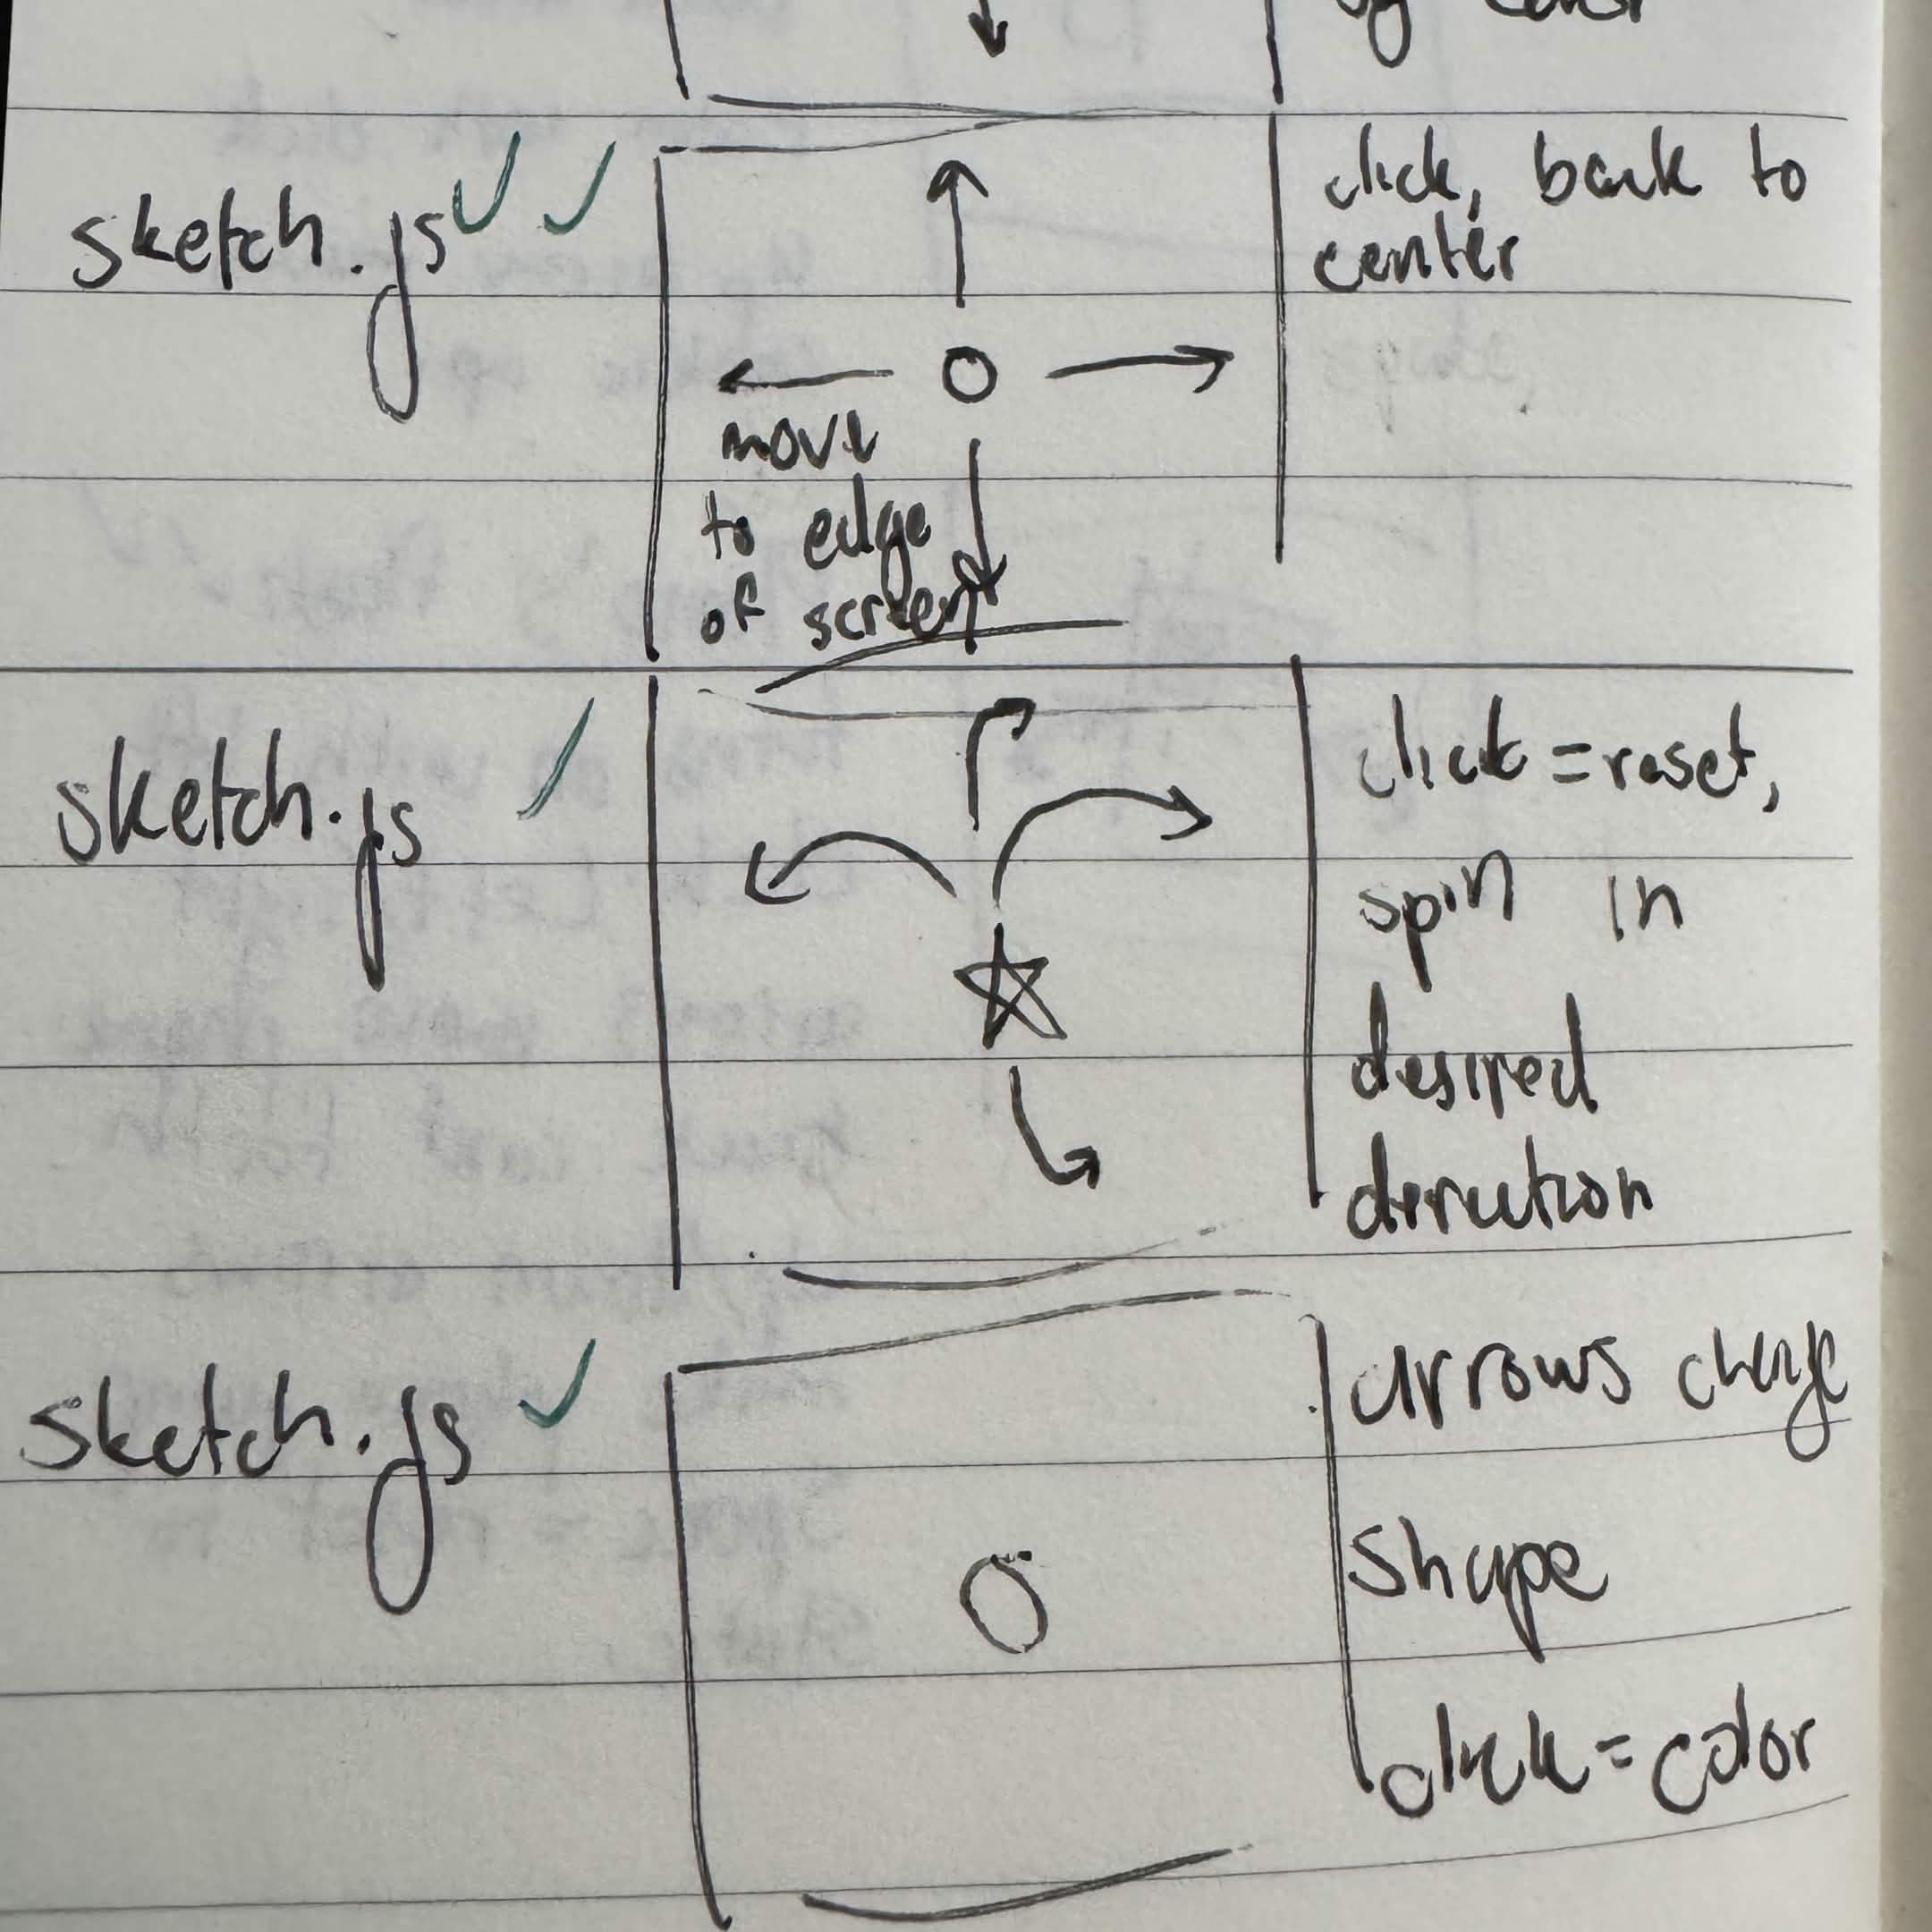 sketch.js
click, back to
center
move
to edge
of screen
sketch.js
click = reset,
spin in
desired
dirrection
sketch.js
arrows change
shape
click = color